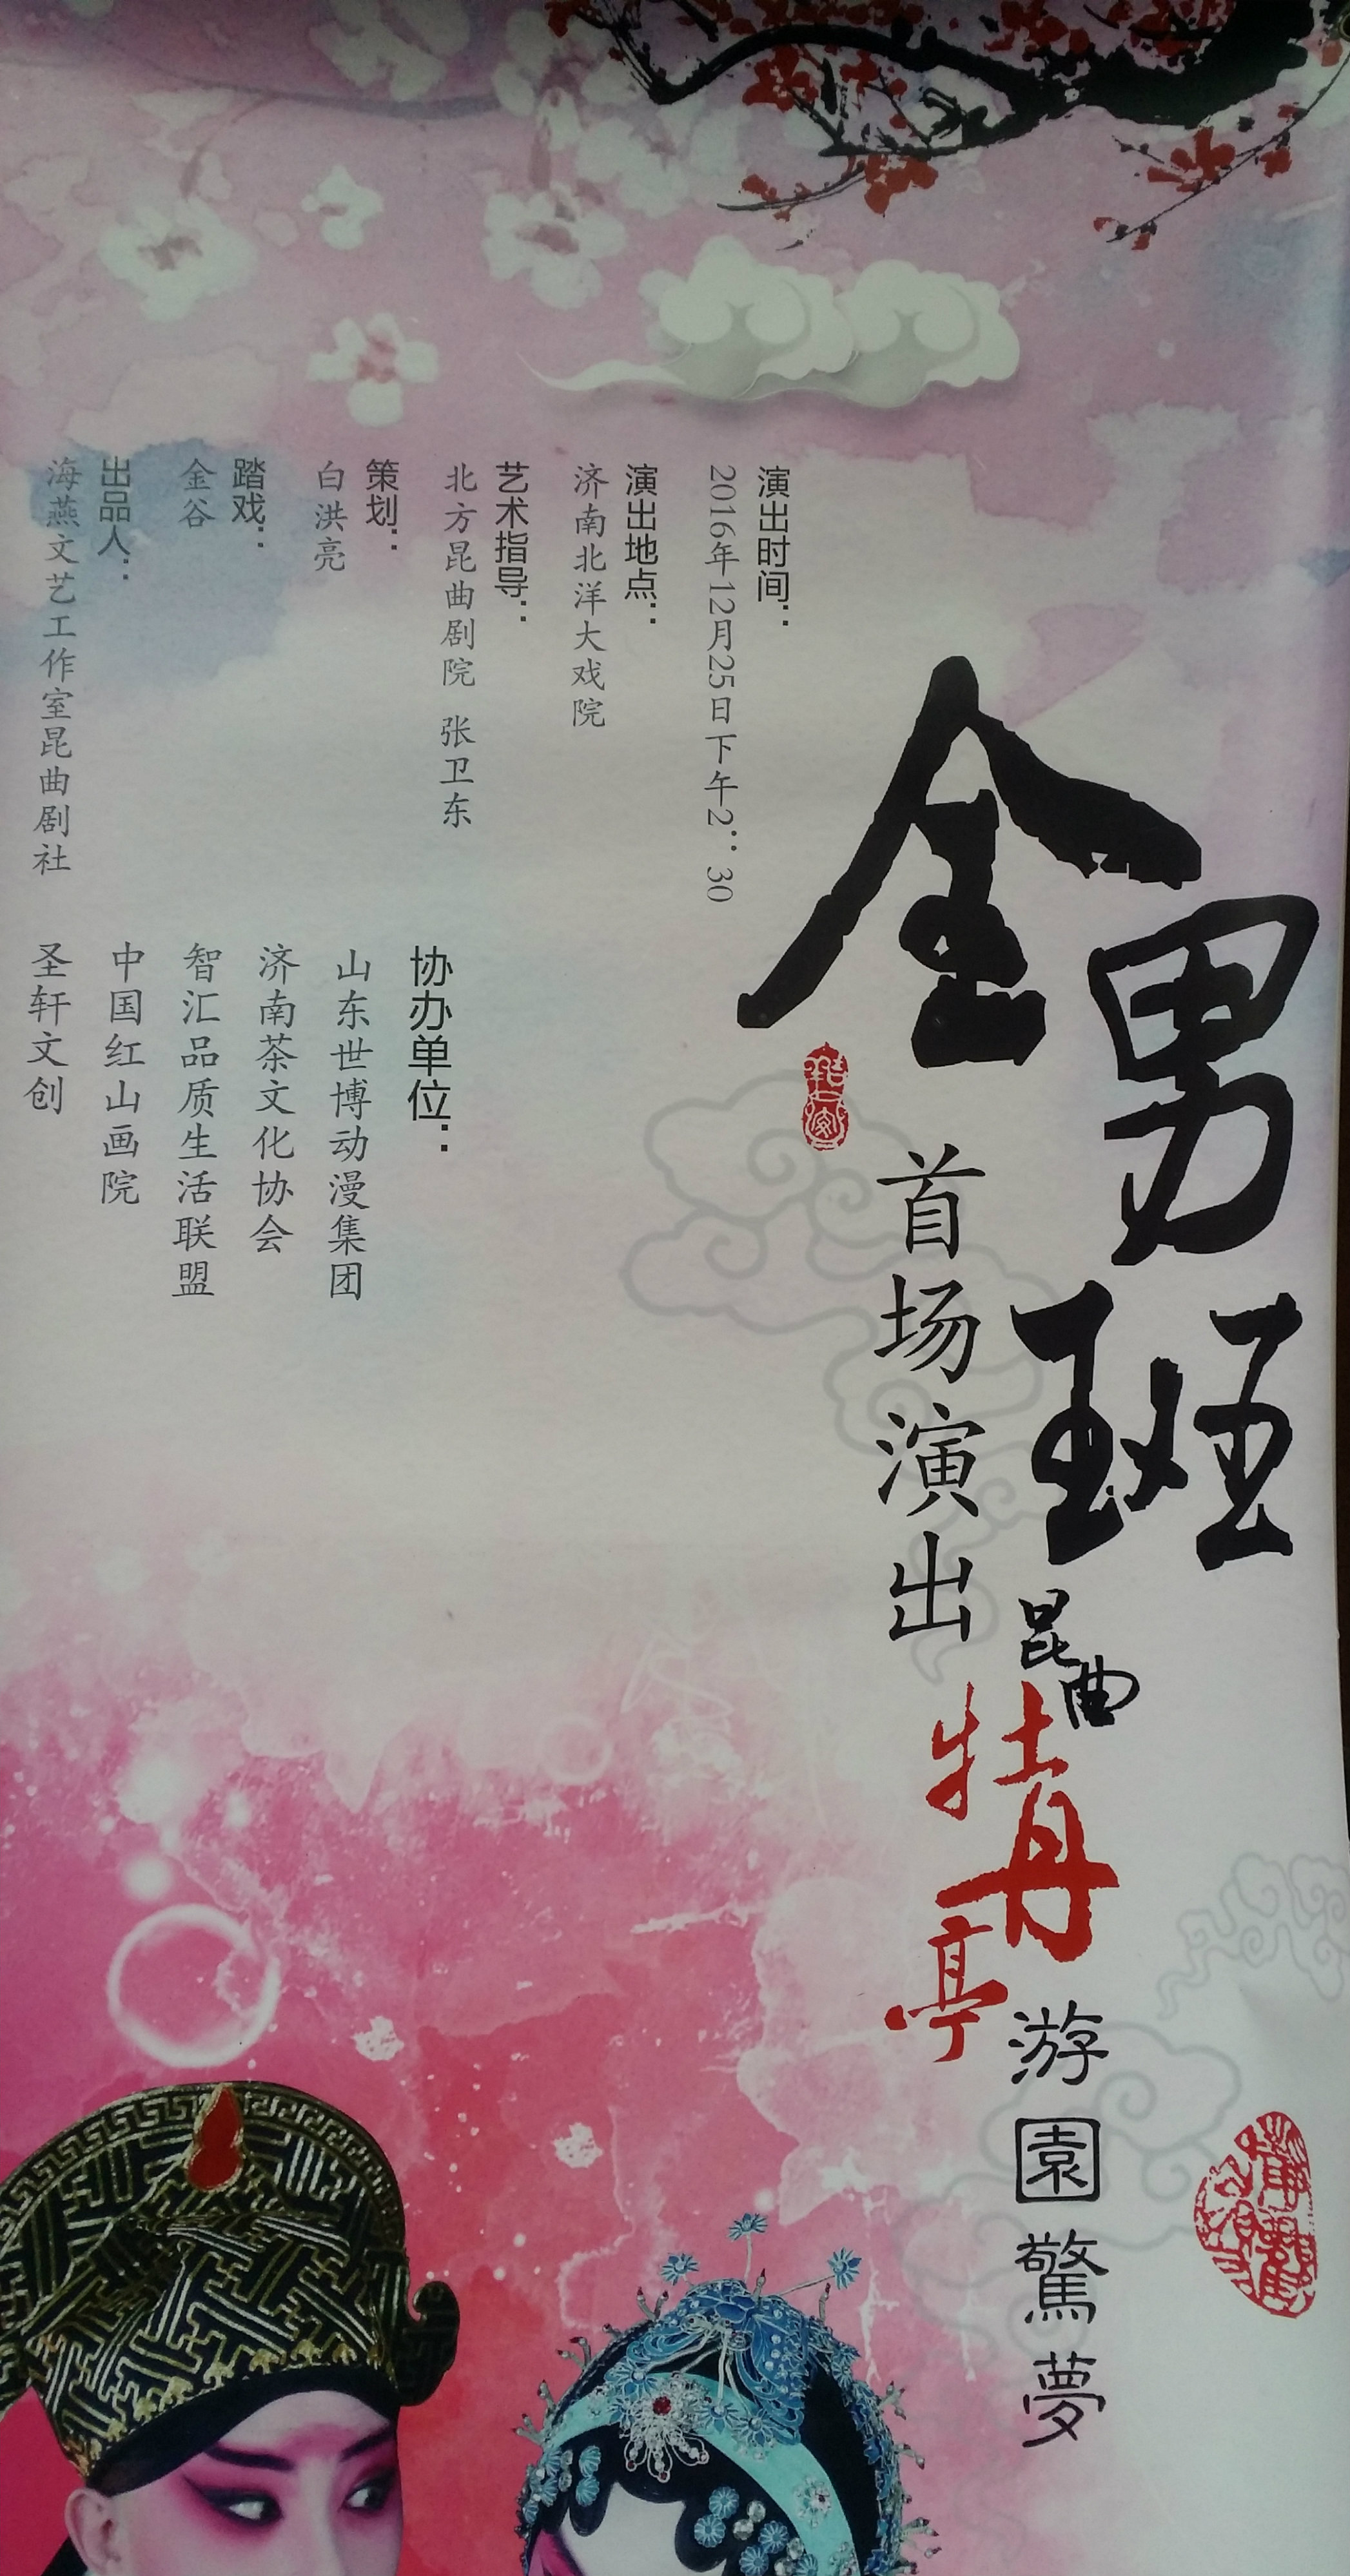 全男班
昆曲
牡丹亭
游園驚夢
首场演出
演出时间：
2016年12月25日下午2：30
演出地点：
济南北洋大戏院
艺术指导：
北方昆曲剧院 张卫东
策划：
白洪亮
踏戏：
金谷
出品人：
海燕文艺工作室昆曲剧社
协办单位：
山东世博动漫集团
济南茶文化协会
智汇品质生活联盟
中国红山画院
圣轩文创